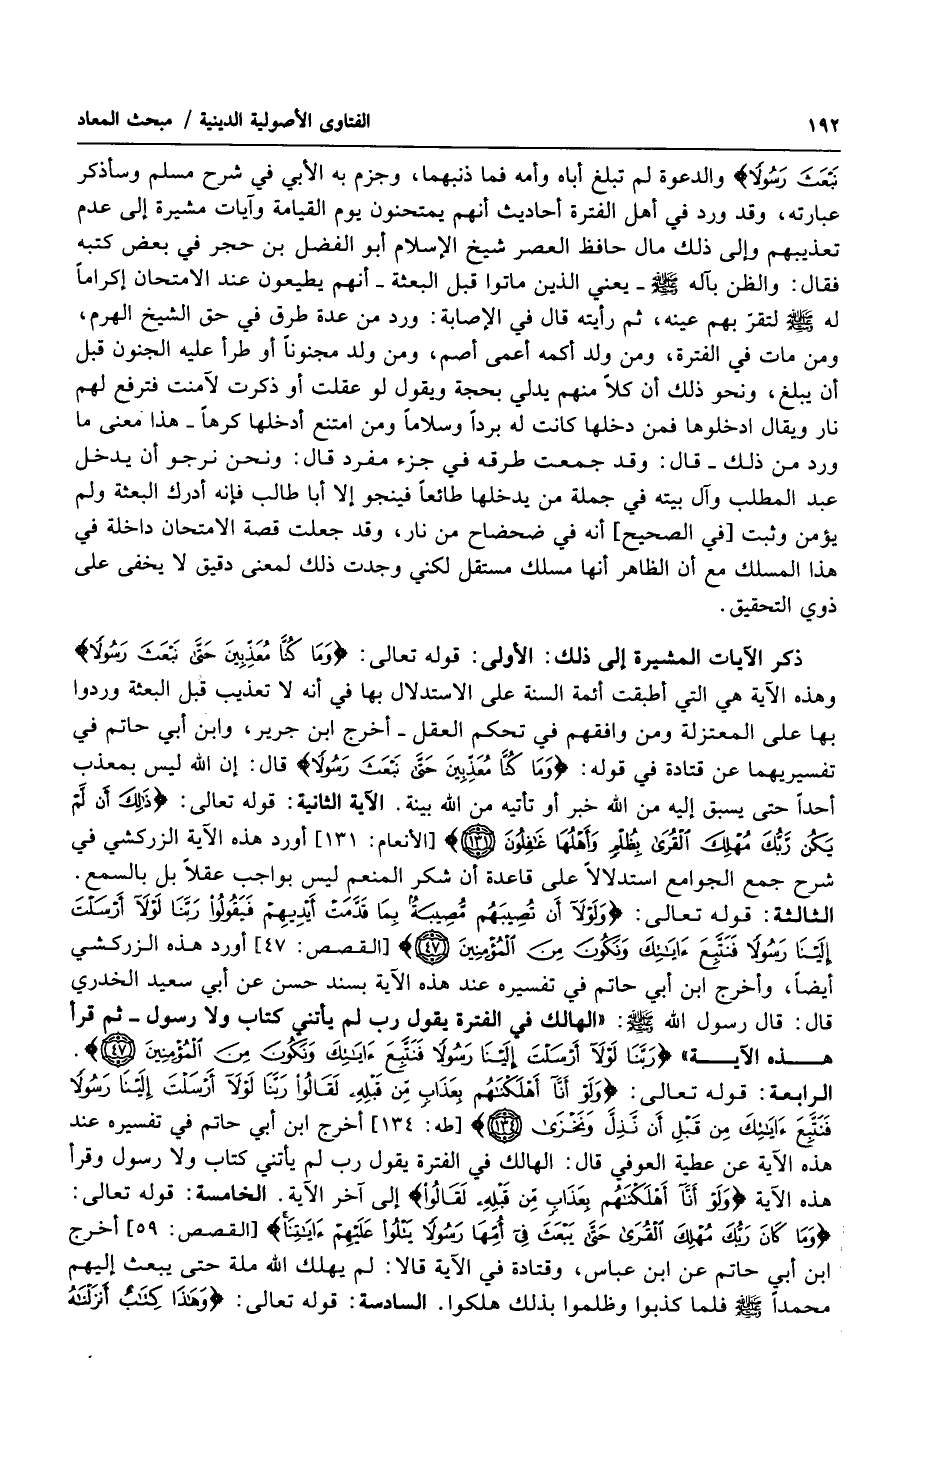 ١٩٢ الفتاوى الأصولية الدينية / مبحث المعاد
نَبْعَثَ رَسُولًا﴾ والدعوة لم تبلغ أباه وأمه فما ذنبهما، وجزم به الأبي في شرح مسلم وسأذكر
عبارته، وقد ورد في أهل الفترة أحاديث أنهم يمتحنون يوم القيامة وآيات مشيرة إلى عدم
تعذيبهم وإلى ذلك مال حافظ العصر شيخ الإسلام أبو الفضل بن حجر في بعض كتبه
فقال: والظن بآله ﷺ ـ يعني الذين ماتوا قبل البعثة ـ أنهم يطيعون عند الامتحان إكراماً
له ﷺ لتقرّ بهم عينه، ثم رأيته قال في الإصابة: ورد من عدة طرق في حق الشيخ الهرم،
ومن مات في الفترة، ومن ولد أكمه أعمى أصم، ومن ولد مجنوناً أو طرأ عليه الجنون قبل
أن يبلغ، ونحو ذلك أن كلاً منهم يدلي بحجة ويقول لو عقلت أو ذكرت لآمنت فترفع لهم
نار ويقال ادخلوها فمن دخلها كانت له برداً وسلاماً ومن امتنع أدخلها كرهاً ـ هذا معنى ما
ورد من ذلك ـ قال: وقد جمعت طرقه في جزء مفرد قال: ونحن نرجو أن يدخل
عبد المطلب وآل بيته في جملة من يدخلها طائعاً فينجو إلا أبا طالب فإنه أدرك البعثة ولم
يؤمن وثبت [في الصحيح] أنه في ضحضاح من نار، وقد جعلت قصة الامتحان داخلة في
هذا المسلك مع أن الظاهر أنها مسلك مستقل لكني وجدت ذلك لمعنى دقيق لا يخفى على
ذوي التحقيق.
ذكر الآيات المشيرة إلى ذلك: الأولى: قوله تعالى: ﴿وَمَا كُنَّا مُعَذِّبِينَ حَتَّى نَبْعَثَ رَسُولًا﴾
وهذه الآية هي التي أطبقت أئمة السنة على الاستدلال بها في أنه لا تعذيب قبل البعثة وردوا
بها على المعتزلة ومن وافقهم في تحكم العقل ـ أخرج ابن جرير، وابن أبي حاتم في
تفسيريهما عن قتادة في قوله: ﴿وَمَا كُنَّا مُعَذِّبِينَ حَتَّى نَبْعَثَ رَسُولًا﴾ قال: إن الله ليس بمعذب
أحداً حتى يسبق إليه من الله خبر أو تأتيه من الله بينة. الآية الثانية: قوله تعالى: ﴿ذَلِكَ أَن لَّمْ
يَكُن رَّبُّكَ مُهْلِكَ الْقُرَى بِظُلْمٍ وَأَهْلُهَا غَافِلُونَ ۝١٣١﴾ [الأنعام: ١٣١] أورد هذه الآية الزركشي في
شرح جمع الجوامع استدلالاً على قاعدة أن شكر المنعم ليس بواجب عقلاً بل بالسمع.
الثالثة: قوله تعالى: ﴿وَلَوْلَا أَن تُصِيبَهُم مُّصِيبَةٌ بِمَا قَدَّمَتْ أَيْدِيهِمْ فَيَقُولُوا رَبَّنَا لَوْلَا أَرْسَلْتَ
إِلَيْنَا رَسُولًا فَنَتَّبِعَ ءَايَاتِكَ وَنَكُونَ مِنَ الْمُؤْمِنِينَ ۝٤٧﴾ [القصص: ٤٧] أورد هذه الزركشي
أيضاً، وأخرج ابن أبي حاتم في تفسيره عند هذه الآية بسند حسن عن أبي سعيد الخدري
قال: قال رسول الله ﷺ: «الهالك في الفترة يقول رب لم يأتني كتاب ولا رسول ـ ثم قرأ
هـذه الآيـة» ﴿رَبَّنَا لَوْلَا أَرْسَلْتَ إِلَيْنَا رَسُولًا فَنَتَّبِعَ ءَايَاتِكَ وَنَكُونَ مِنَ الْمُؤْمِنِينَ ۝٤٧﴾.
الرابعة: قوله تعالى: ﴿وَلَوْ أَنَّا أَهْلَكْنَاهُم بِعَذَابٍ مِّن قَبْلِهِ لَقَالُوا رَبَّنَا لَوْلَا أَرْسَلْتَ إِلَيْنَا رَسُولًا
فَنَتَّبِعَ ءَايَاتِكَ مِن قَبْلِ أَن نَّذِلَّ وَنَخْزَى ۝١٣٤﴾ [طه: ١٣٤] أخرج ابن أبي حاتم في تفسيره عند
هذه الآية عن عطية العوفي قال: الهالك في الفترة يقول رب لم يأتني كتاب ولا رسول وقرأ
هذه الآية ﴿وَلَوْ أَنَّا أَهْلَكْنَاهُم بِعَذَابٍ مِّن قَبْلِهِ لَقَالُوا﴾ إلى آخر الآية. الخامسة: قوله تعالى:
﴿وَمَا كَانَ رَبُّكَ مُهْلِكَ الْقُرَى حَتَّى يَبْعَثَ فِي أُمِّهَا رَسُولًا يَتْلُوا عَلَيْهِمْ ءَايَاتِنَا﴾ [القصص: ٥٩] أخرج
ابن أبي حاتم عن ابن عباس، وقتادة في الآية قالا: لم يهلك الله ملة حتى يبعث إليهم
محمداً ﷺ فلما كذبوا وظلموا بذلك هلكوا. السادسة: قوله تعالى: ﴿وَهَذَا كِتَابٌ أَنزَلْنَاهُ